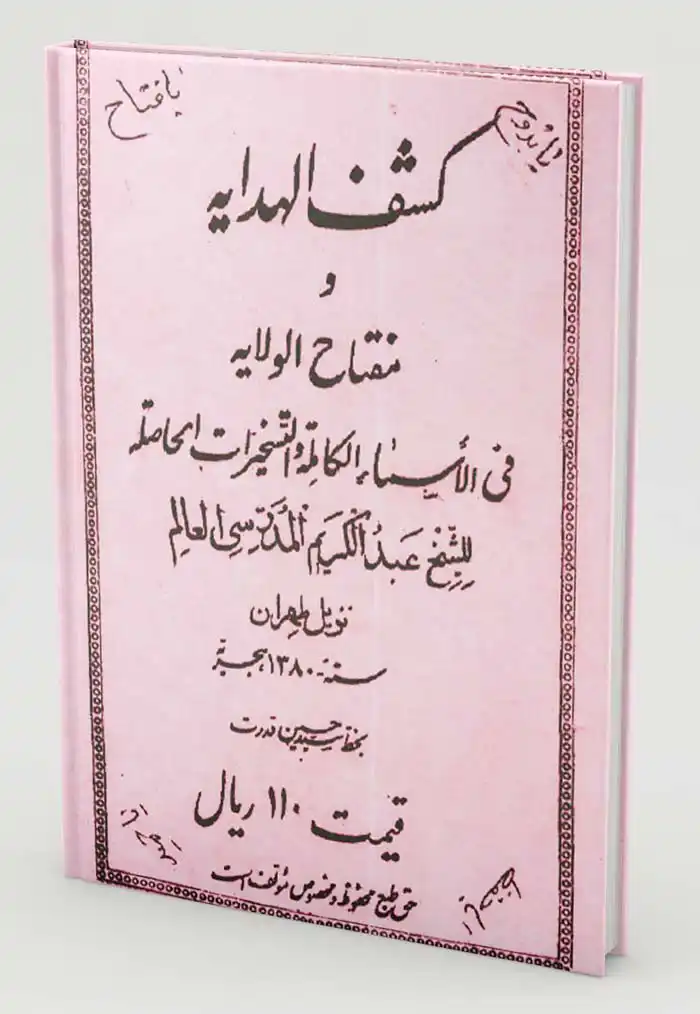 یا بدوح
یا فتاح
کشف الهدایه
و
مفتاح الولایه
فی الأسماء الکاملة والتسخیرات الحاصلة
للشیخ عبد الکریم المدرسی العالم
نزیل طهران
سنة ۱۳۸۰ هجریة
بخط سید حسین قدرت
قیمت ۱۱۰ ریال
حق طبع محفوظ و مخصوص مؤلف است
یا حفیظ